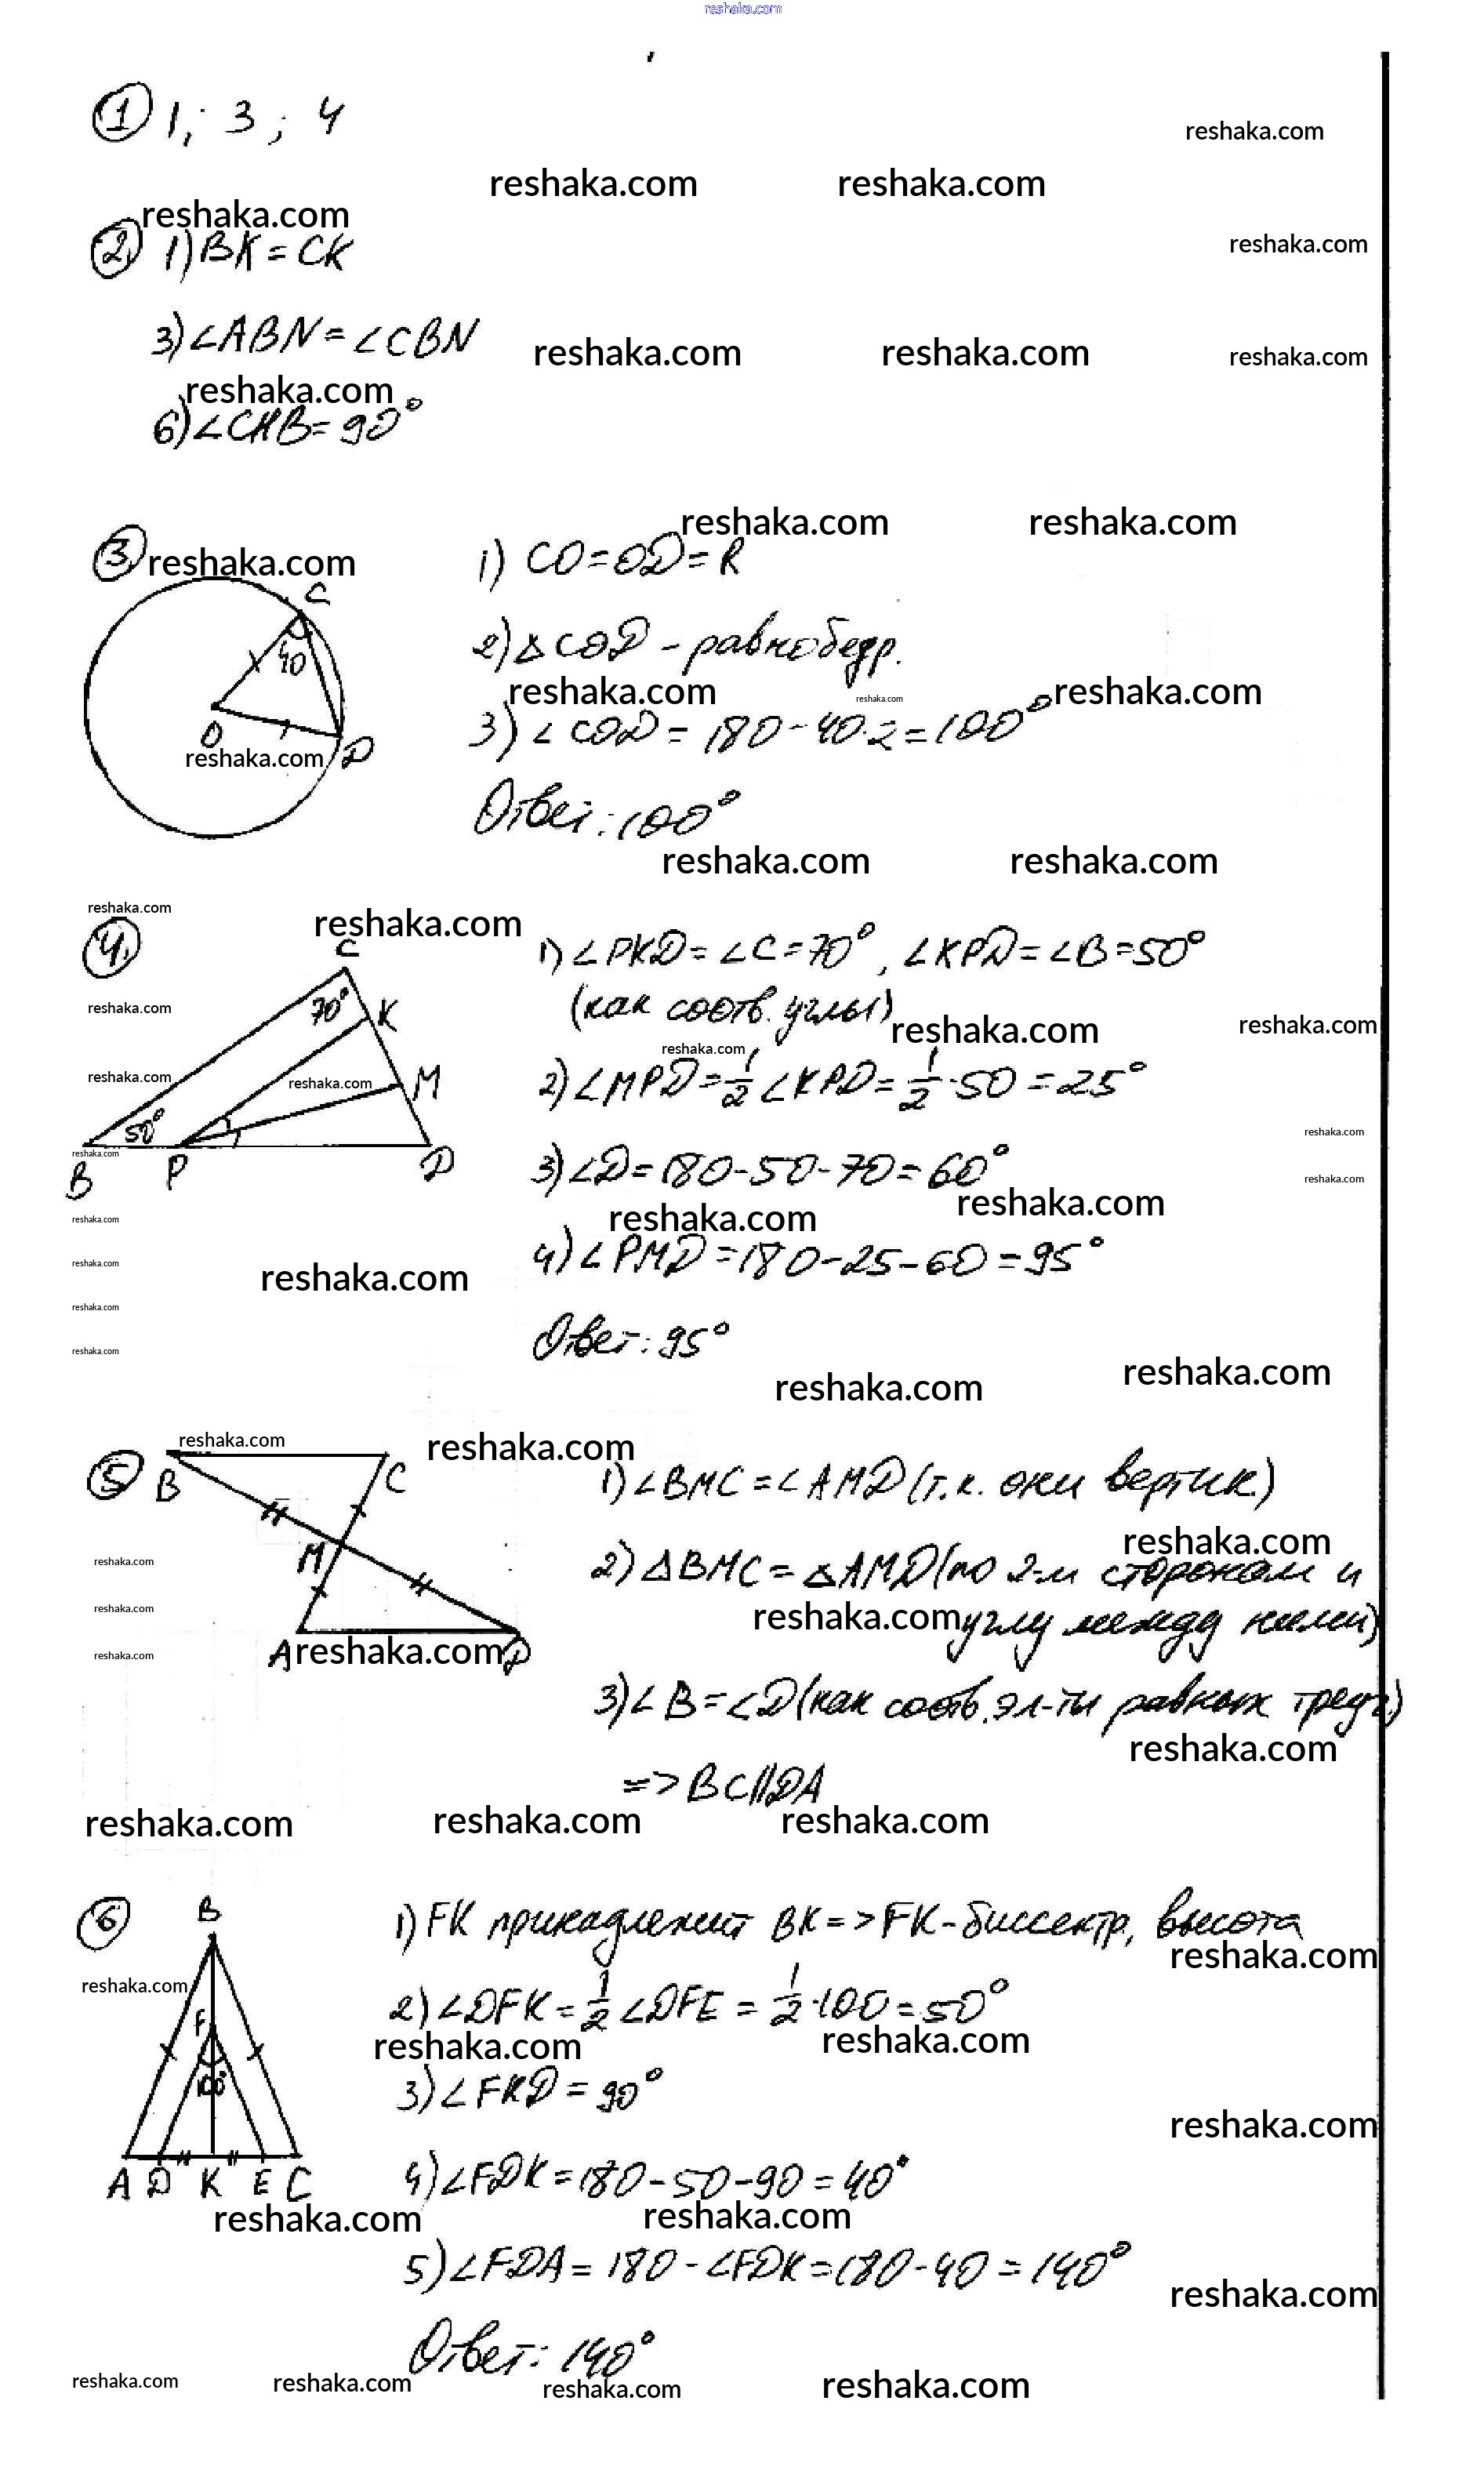 reshaka.com
① 1; 3; 4
reshaka.com
reshaka.com reshaka.com
reshaka.com
② 1) BK = CK
reshaka.com
3) ∠ABN = ∠CBN
reshaka.com reshaka.com reshaka.com
reshaka.com
6) ∠CHB = 90°
reshaka.com reshaka.com
③ reshaka.com
1) CO = OD = R
C
40
O
D
reshaka.com
2) △COD - равнобедр.
reshaka.com reshaka.com reshaka.com
3) ∠COD = 180 - 40·2 = 100°
Ответ: 100°
reshaka.com reshaka.com
reshaka.com
④ reshaka.com
C
70°
K
M
50°
B P D
reshaka.com
reshaka.com reshaka.com
1) ∠PKD = ∠C = 70°, ∠KPD = ∠B = 50°
(как соотв. углы)
reshaka.com reshaka.com
reshaka.com
2) ∠MPD = 1/2 ∠KPD = 1/2 · 50 = 25°
reshaka.com
3) ∠D = 180 - 50 - 70 = 60°
reshaka.com
reshaka.com
reshaka.com reshaka.com
4) ∠PMD = 180 - 25 - 60 = 95°
reshaka.com
reshaka.com
reshaka.com
reshaka.com
reshaka.com
Ответ: 95°
reshaka.com
reshaka.com reshaka.com
⑤ reshaka.com reshaka.com
B C
M
A reshaka.com D
1) ∠BMC = ∠AMD (т.к. они вертик.)
reshaka.com
2) △BMC = △AMD (по 2-м сторонам и
reshaka.com углу между ними)
reshaka.com
reshaka.com
reshaka.com
3) ∠B = ∠D (как соотв. эл-ты равных треуг.)
reshaka.com
=> BC || DA
reshaka.com reshaka.com reshaka.com
⑥ B
reshaka.com
F
100°
A D K E C
1) FK принадлежит BK => FK - биссектр, высота
reshaka.com
2) ∠DFK = 1/2 ∠DFE = 1/2 · 100 = 50°
reshaka.com reshaka.com
3) ∠FKD = 90°
reshaka.com
4) ∠FDK = 180 - 50 - 90 = 40°
reshaka.com reshaka.com
5) ∠FDA = 180 - ∠FDK = 180 - 40 = 140°
reshaka.com
Ответ: 140°
reshaka.com reshaka.com reshaka.com reshaka.com